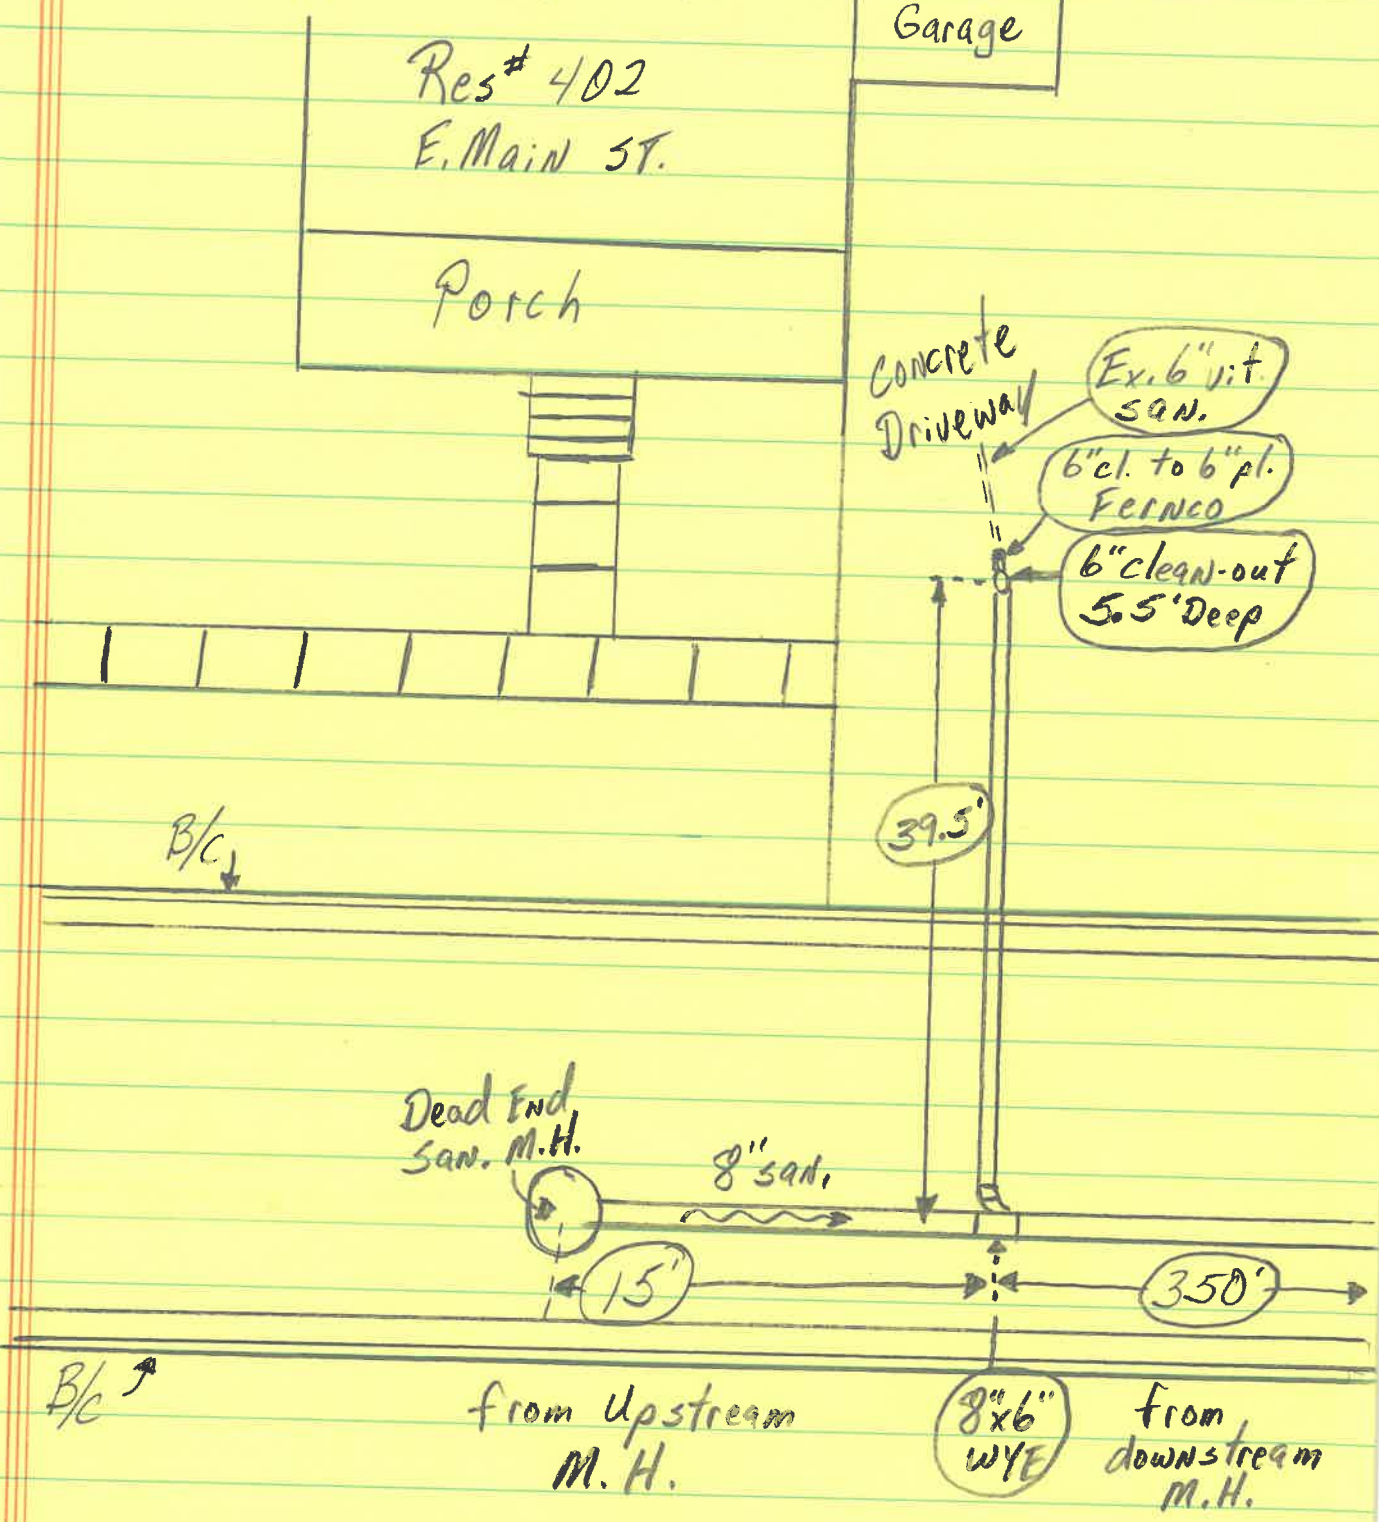 Garage
Res# 402
E. Main ST.
Porch
Concrete
Driveway
Ex. 6" vit.
SAN.
6" cl. to 6" pl.
Fernco
6" clean-out
5.5' Deep
39.5'
B/C
Dead End
San. M.H.
8" san.
15'
350'
B/C
from Upstream
M.H.
8"x6"
WYE
from
downstream
M.H.